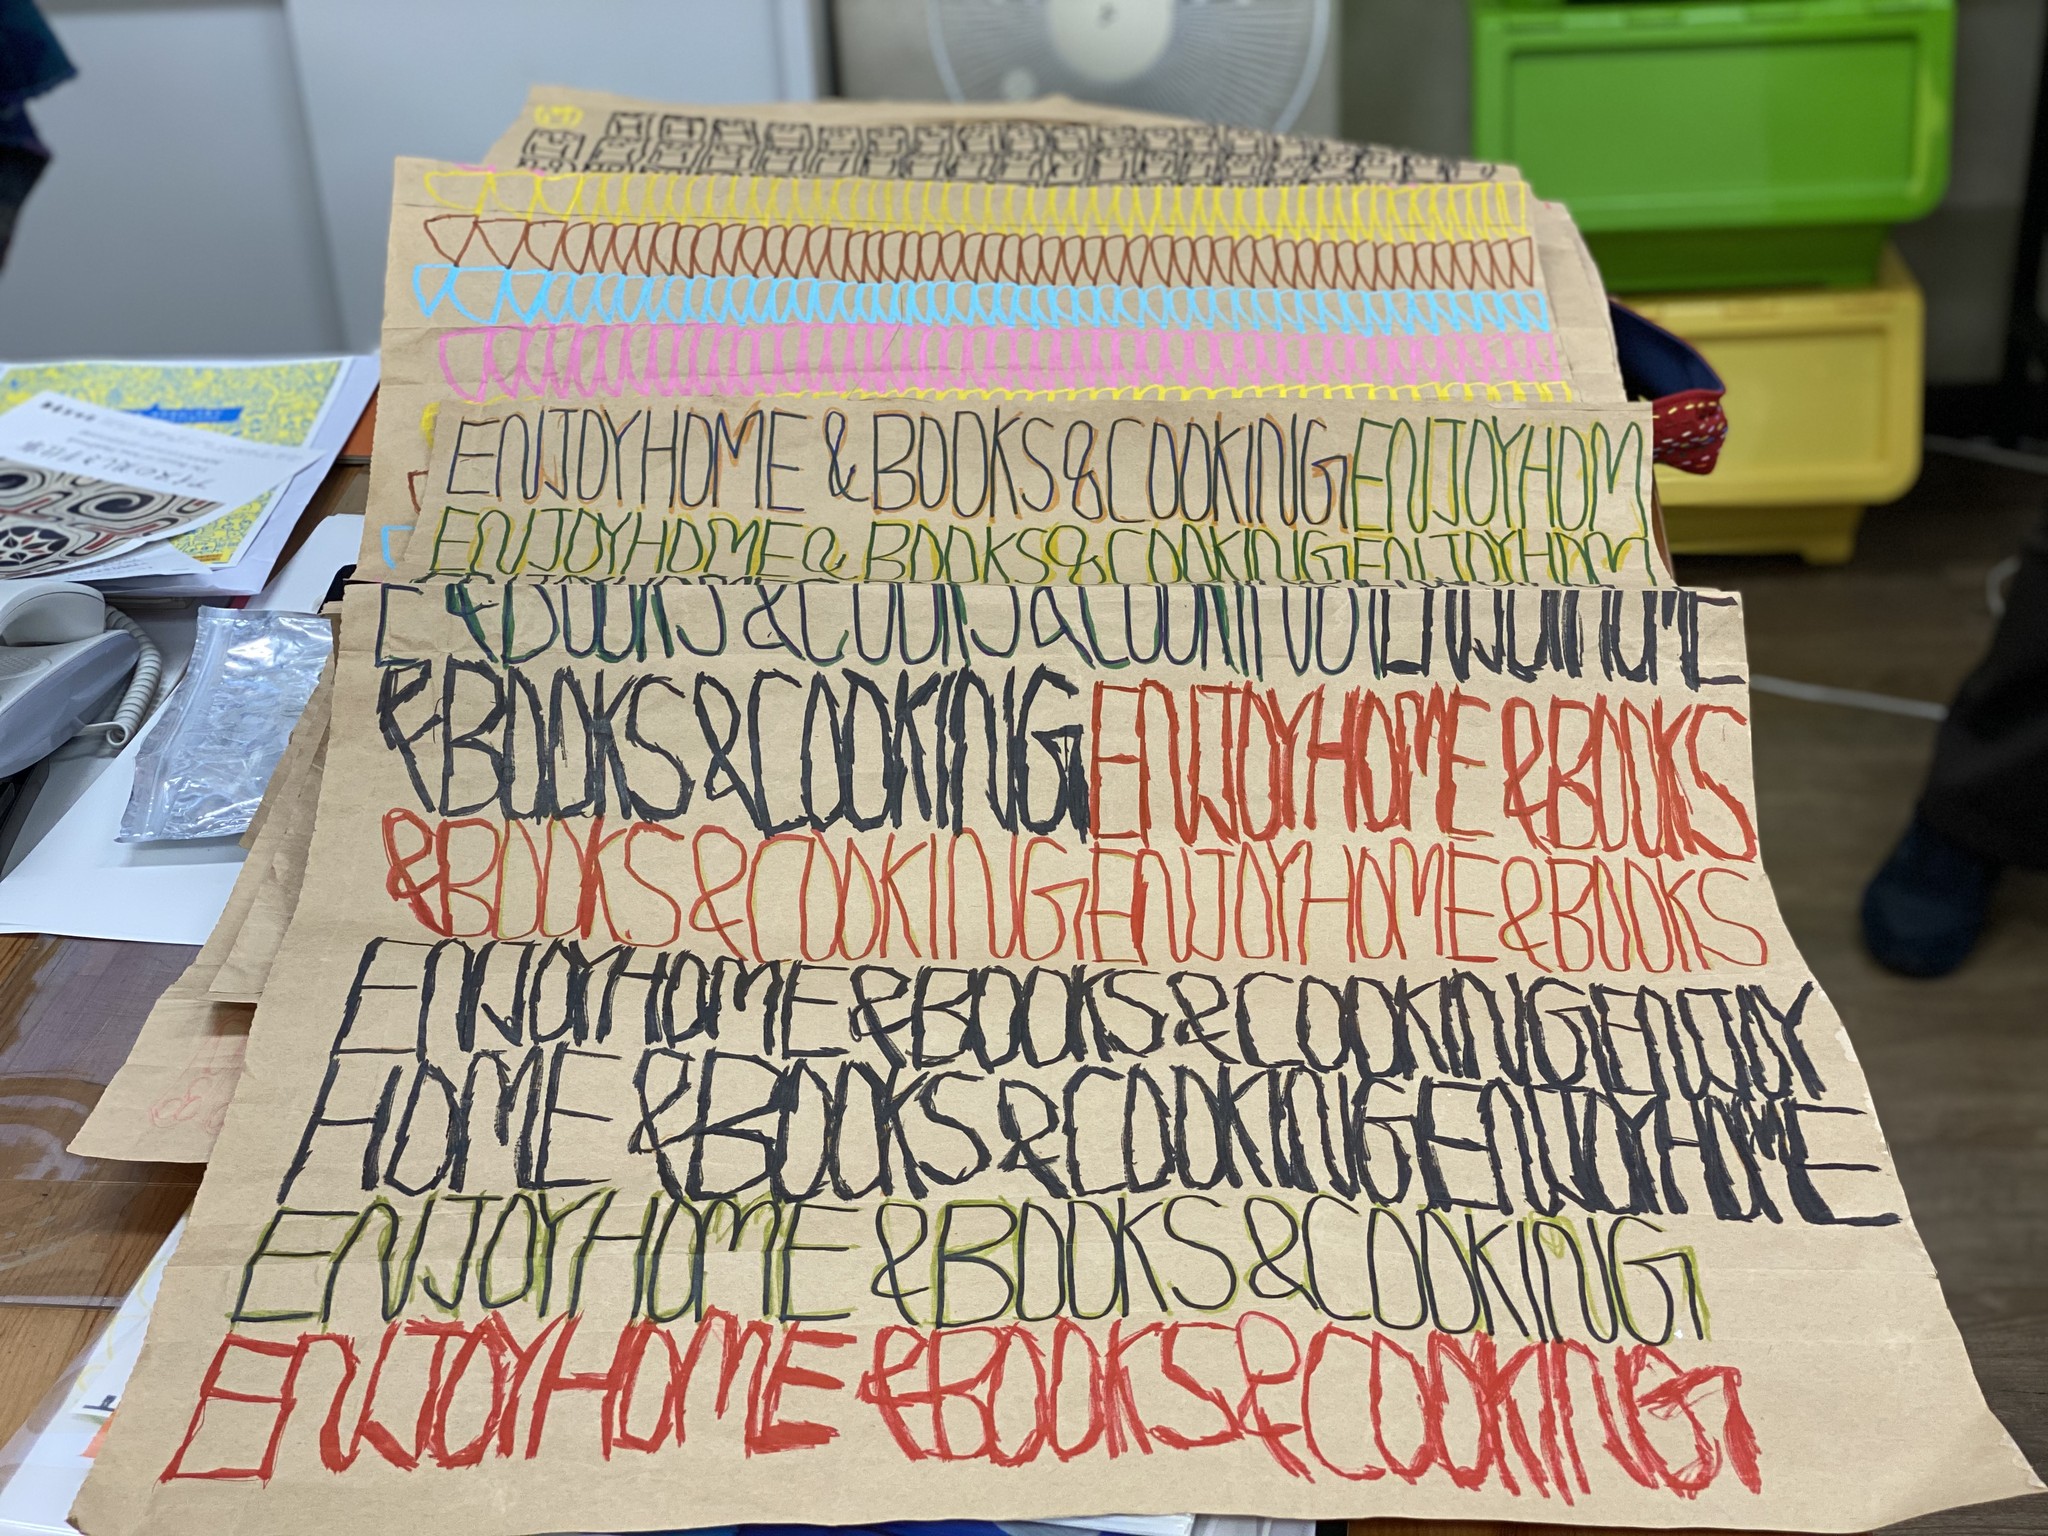 ENJOYHOME & BOOKS & COOKING ENJOYHOM
ENJOYHOME & BOOKS & COOKING ENJOYHOM
E & BOOKS & COOKS & COOKING ENJOYHOME
& BOOKS & COOKING ENJOYHOME & BOOKS
& BOOKS & COOKING ENJOYHOME & BOOKS
ENJOYHOME & BOOKS & COOKING ENJOY
HOME & BOOKS & COOKING ENJOYHOME
ENJOYHOME & BOOKS & COOKING
ENJOYHOME & BOOKS & COOKING